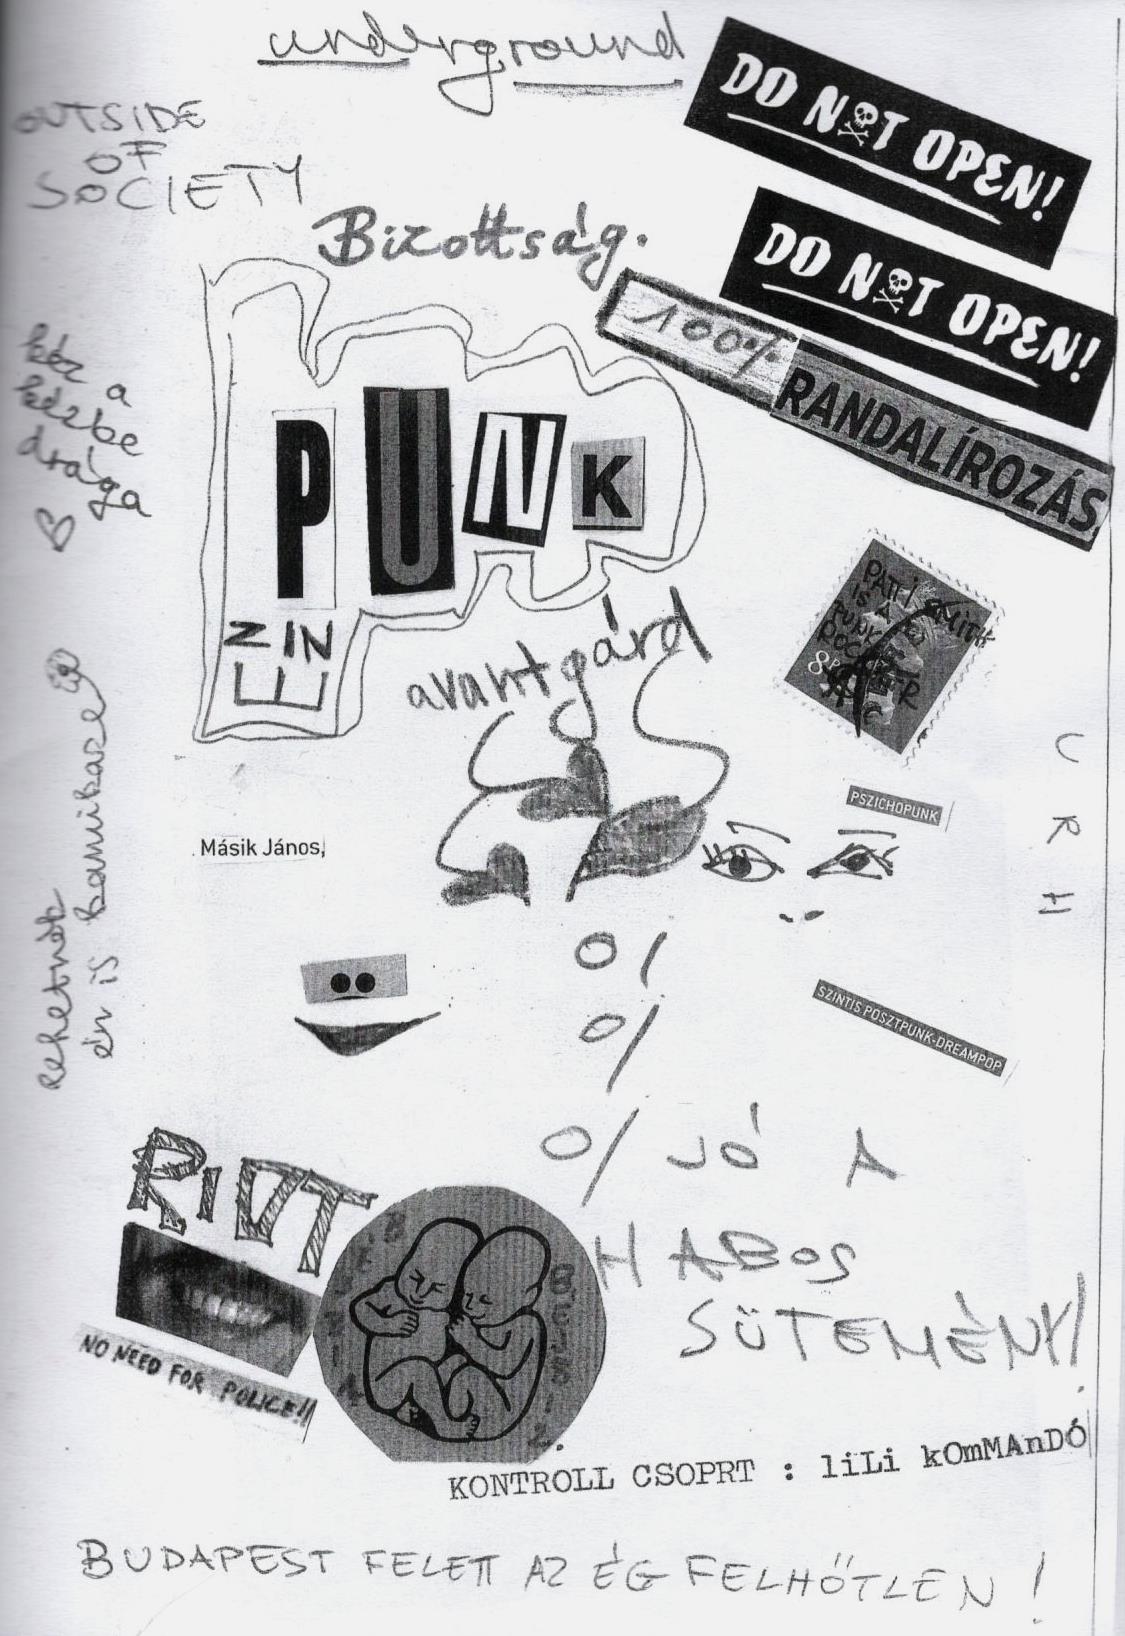 underground
DO NOT OPEN!
OUTSIDE
OF
SOCIETY
DO NOT OPEN!
Bizottság.
100%
RANDALÍROZÁS.
kéz a
kézbe
drága
PUNK
ZIN
E
PATTI SMITH
IS A
PUNK
8P
avantgárd
rehetnék
én is kamikaze
PSZICHOPUNK
C
R
H
Másik János,
0/
0/
SZINTIS POSZTPUNK-DREAMPOP
0/ JÓ A
HABOS
SÜTEMÉNY!
RIOT
NO NEED FOR POLICE!!
KONTROLL CSOPRT : liLi kOmMAnDÓ
BUDAPEST FELETT AZ ÉG FELHŐTLEN !